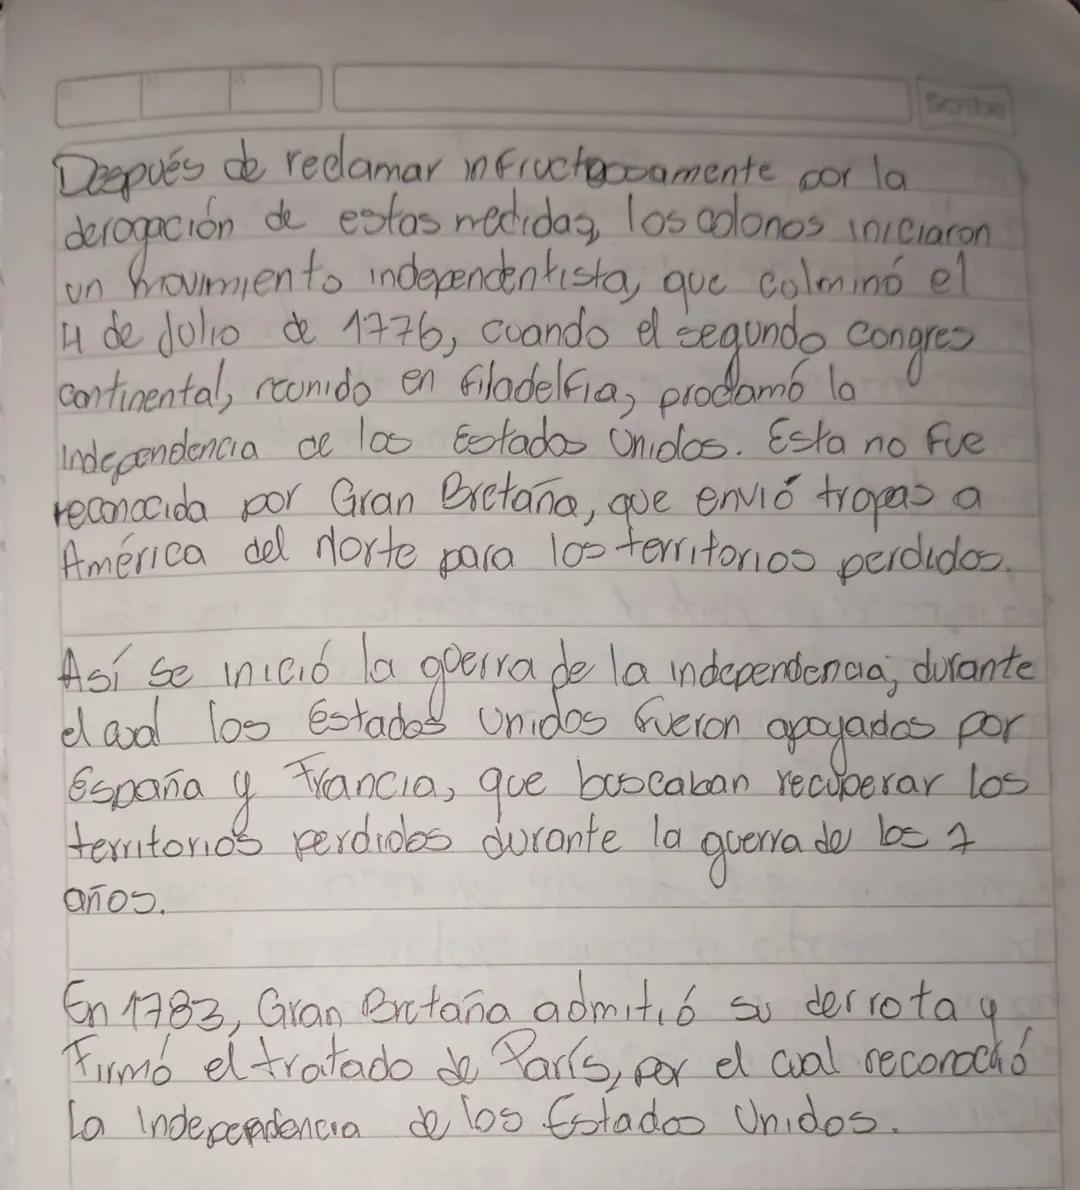 Scribe
Después de reclamar infructuosamente por la
derogación de estas medidas, los colonos iniciaron
un movimiento independentista, que culminó el
4 de Julio de 1776, cuando el segundo Congres
continental, reunido en Filadelfia, proclamó la
independencia de los Estados Unidos. Esta no fue
reconocida por Gran Bretaña, que envió tropas a
América del Norte para los territorios perdidos.
Así se inició la guerra de la independencia, durante
el cual los Estados Unidos fueron apoyados por
España y Francia, que buscaban recuperar los
territorios perdidos durante la guerra de los 7
años.
En 1783, Gran Bretaña admitió su derrota y
Firmó el tratado de París, por el cual reconoció
la Independencia de los Estados Unidos.